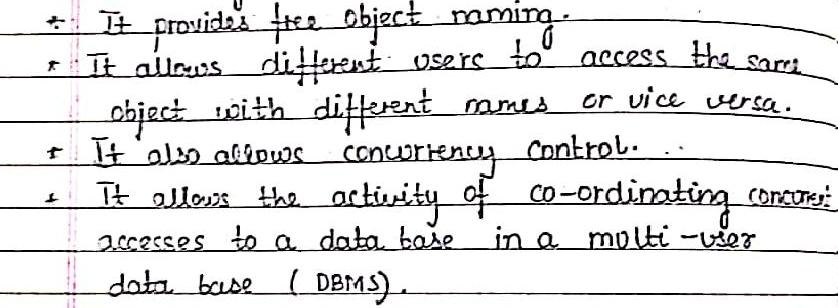 * It provides free object naming.
* It allows different users to access the same
object with different names or vice versa.
* It also allows concurrency control.
* It allows the activity of co-ordinating concurrent
accesses to a data base in a multi-user
data base (DBMS).